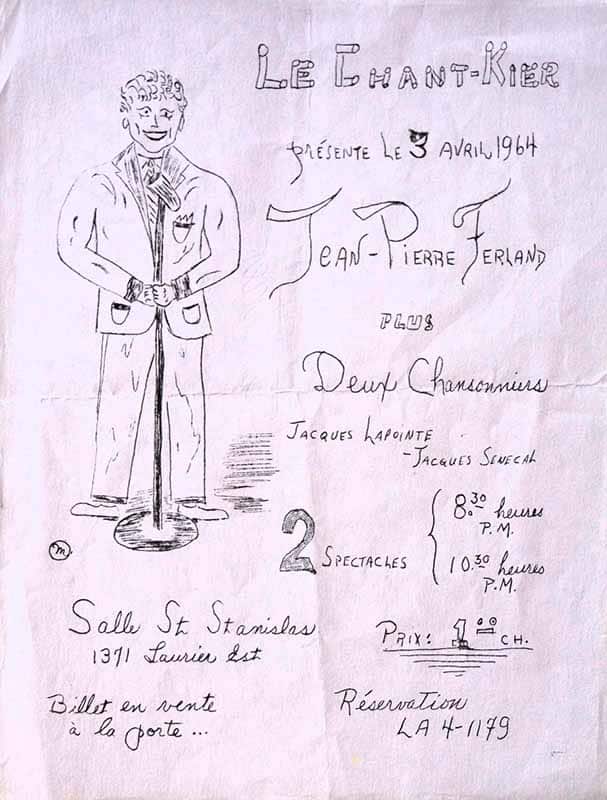 LE CHANT-KIER
PRÉSENTE LE 3 AVRIL 1964
JEAN-PIERRE FERLAND
PLUS
Deux Chansonniers
JACQUES LAPOINTE
-JACQUES SENECAL
2 SPECTACLES
8.30 heures
P.M.
10.30 heures
P.M.
M.
Salle St Stanislas
1371 Laurier Est
PRIX: 1.00 CH.
Billet en vente
à la porte ...
Réservation
LA 4-1179